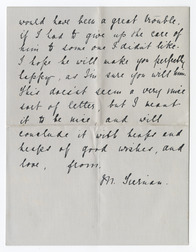 would have been a great trouble,
if I had to give up the care of
him to some one I didn't like.
I hope he will make you perfectly
happy, as I'm sure you will him.
This doesn't seem a very nice
sort of letter, but I meant
it to be nice, and will
conclude it with heaps and
heaps of good wishes, and
love, from.